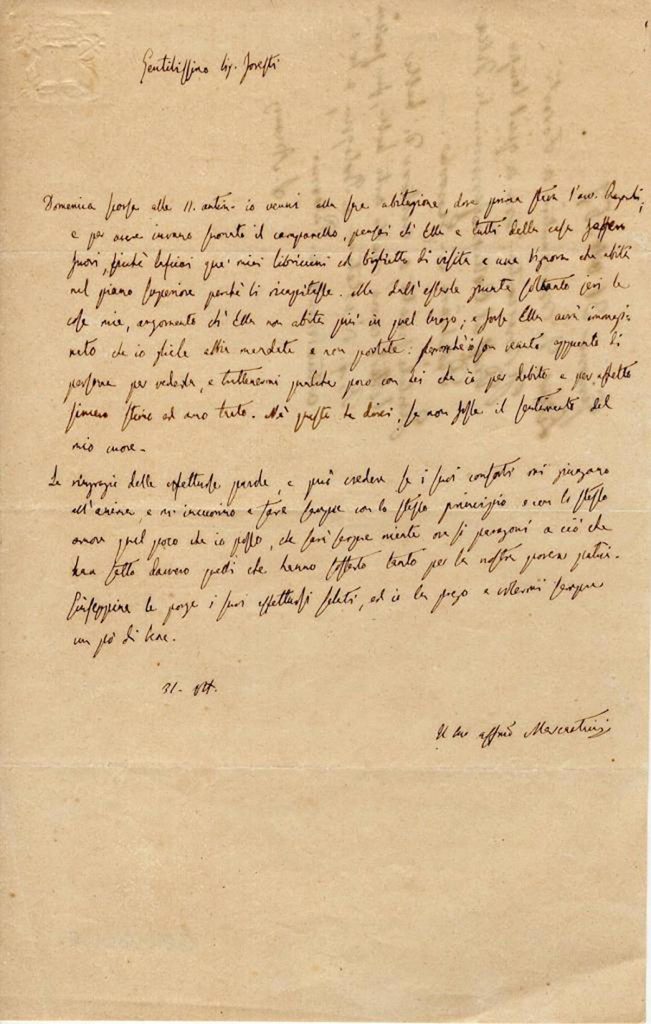 Gentilissimo Sig. Foresti
Domenica scorsa alle 11. antim. io venni alla sua abitazione, dove prima stava l'avv.
e per avere invano suonato il campanello, pensai ch'Ella e tutti della casa fossero
fuori, sicchè lasciai que' miei libriccini col biglietto di visita a una Signora che abita
nel piano superiore perchè li ricapitasse. Ma dall'esserle giunte soltanto jeri le
cose mie, argomento ch'Ella non abita più in quel luogo; e forse Ella avrà immagi-
nato che io gliele abbia mandate e non portate: perocchè io son venuto appunto di
persona per vederla, e trattenermi qualche poco con lei che io per debito e per affetto
sincero stimo ed amo tanto. Nè questo le direi, se non fosse il sentimento del
mio cuore.
La ringrazio delle affettuose parole, e può credere se i suoi conforti mi giungano
all'anima, e m'incuorino a fare sempre con lo stesso principio e con lo stesso
amore quel poco che io posso, che sarà sempre niente ove si paragoni a ciò che
han fatto davvero quelli che hanno sofferto tanto per la nostra povera patria.
Giuseppina le porge i suoi affettuosi saluti, ed io la prego a volermi sempre
un pò di bene.
31. Ott.
Il suo affmo